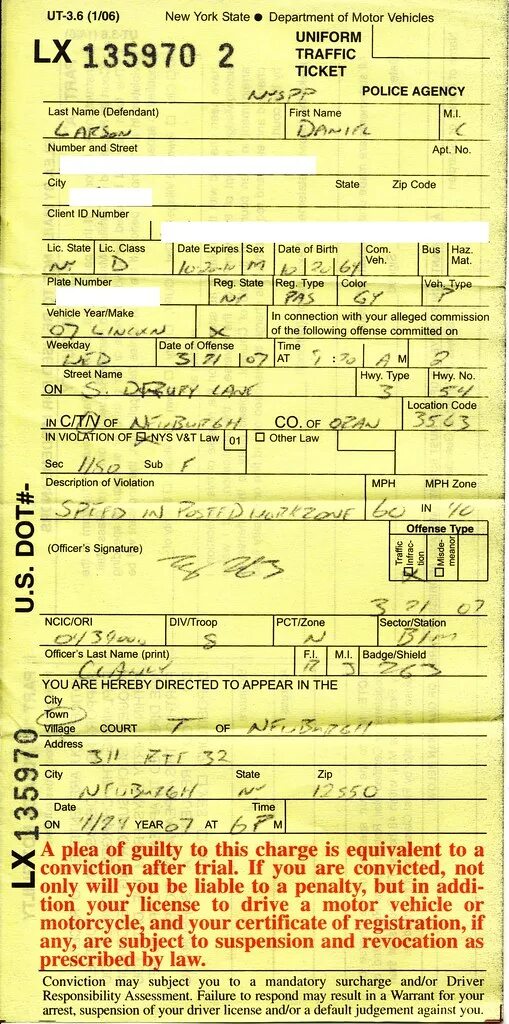 UT-3.6 (1/06) New York State ● Department of Motor Vehicles
LX 135970 2
UNIFORM
TRAFFIC
TICKET
NYSPP POLICE AGENCY
Last Name (Defendant) First Name M.I.
LARSON DANIEL C
Number and Street Apt. No.
City State Zip Code
Client ID Number
Lic. State Lic. Class Date Expires Sex Date of Birth Com. Veh. Bus Haz. Mat.
NY D 10-20-10 M 10 20 64
Plate Number Reg. State Reg. Type Color Veh. Type
NY PAS GY P
Vehicle Year/Make In connection with your alleged commission
07 LINCOLN X of the following offense committed on
Weekday Date of Offense Time
WED 3 21 07 AT 9:20 A M 2
Street Name Hwy. Type Hwy. No.
ON S. LANE 3 54
Location Code
IN C/T/V OF NEWBURGH CO. OF ORAN 3563
IN VIOLATION OF NYS V&T Law 01 Other Law
Sec 1180 Sub F
Description of Violation MPH MPH Zone
SPEED IN POSTED WORKZONE 60 IN 40
Offense Type
(Officer's Signature) Traffic Infrac-tion X Misde-meanor
263
3 21 07
NCIC/ORI DIV/Troop PCT/Zone Sector/Station
S N
Officer's Last Name (print) F.I. M.I. Badge/Shield
CLANCY R J 263
YOU ARE HEREBY DIRECTED TO APPEAR IN THE
City
Town
Village COURT T OF NEWBURGH
Address
311 RTE 32
City State Zip
NEWBURGH NY 12550
Date Time
ON 4/24 YEAR 07 AT 6 P M
A plea of guilty to this charge is equivalent to a
conviction after trial. If you are convicted, not
only will you be liable to a penalty, but in addi-
tion your license to drive a motor vehicle or
motorcycle, and your certificate of registration, if
any, are subject to suspension and revocation as
prescribed by law.
Conviction may subject you to a mandatory surcharge and/or Driver
Responsibility Assessment. Failure to respond may result in a Warrant for your
arrest, suspension of your driver license and/or a default judgement against you.
U.S. DOT#-
LX 135970